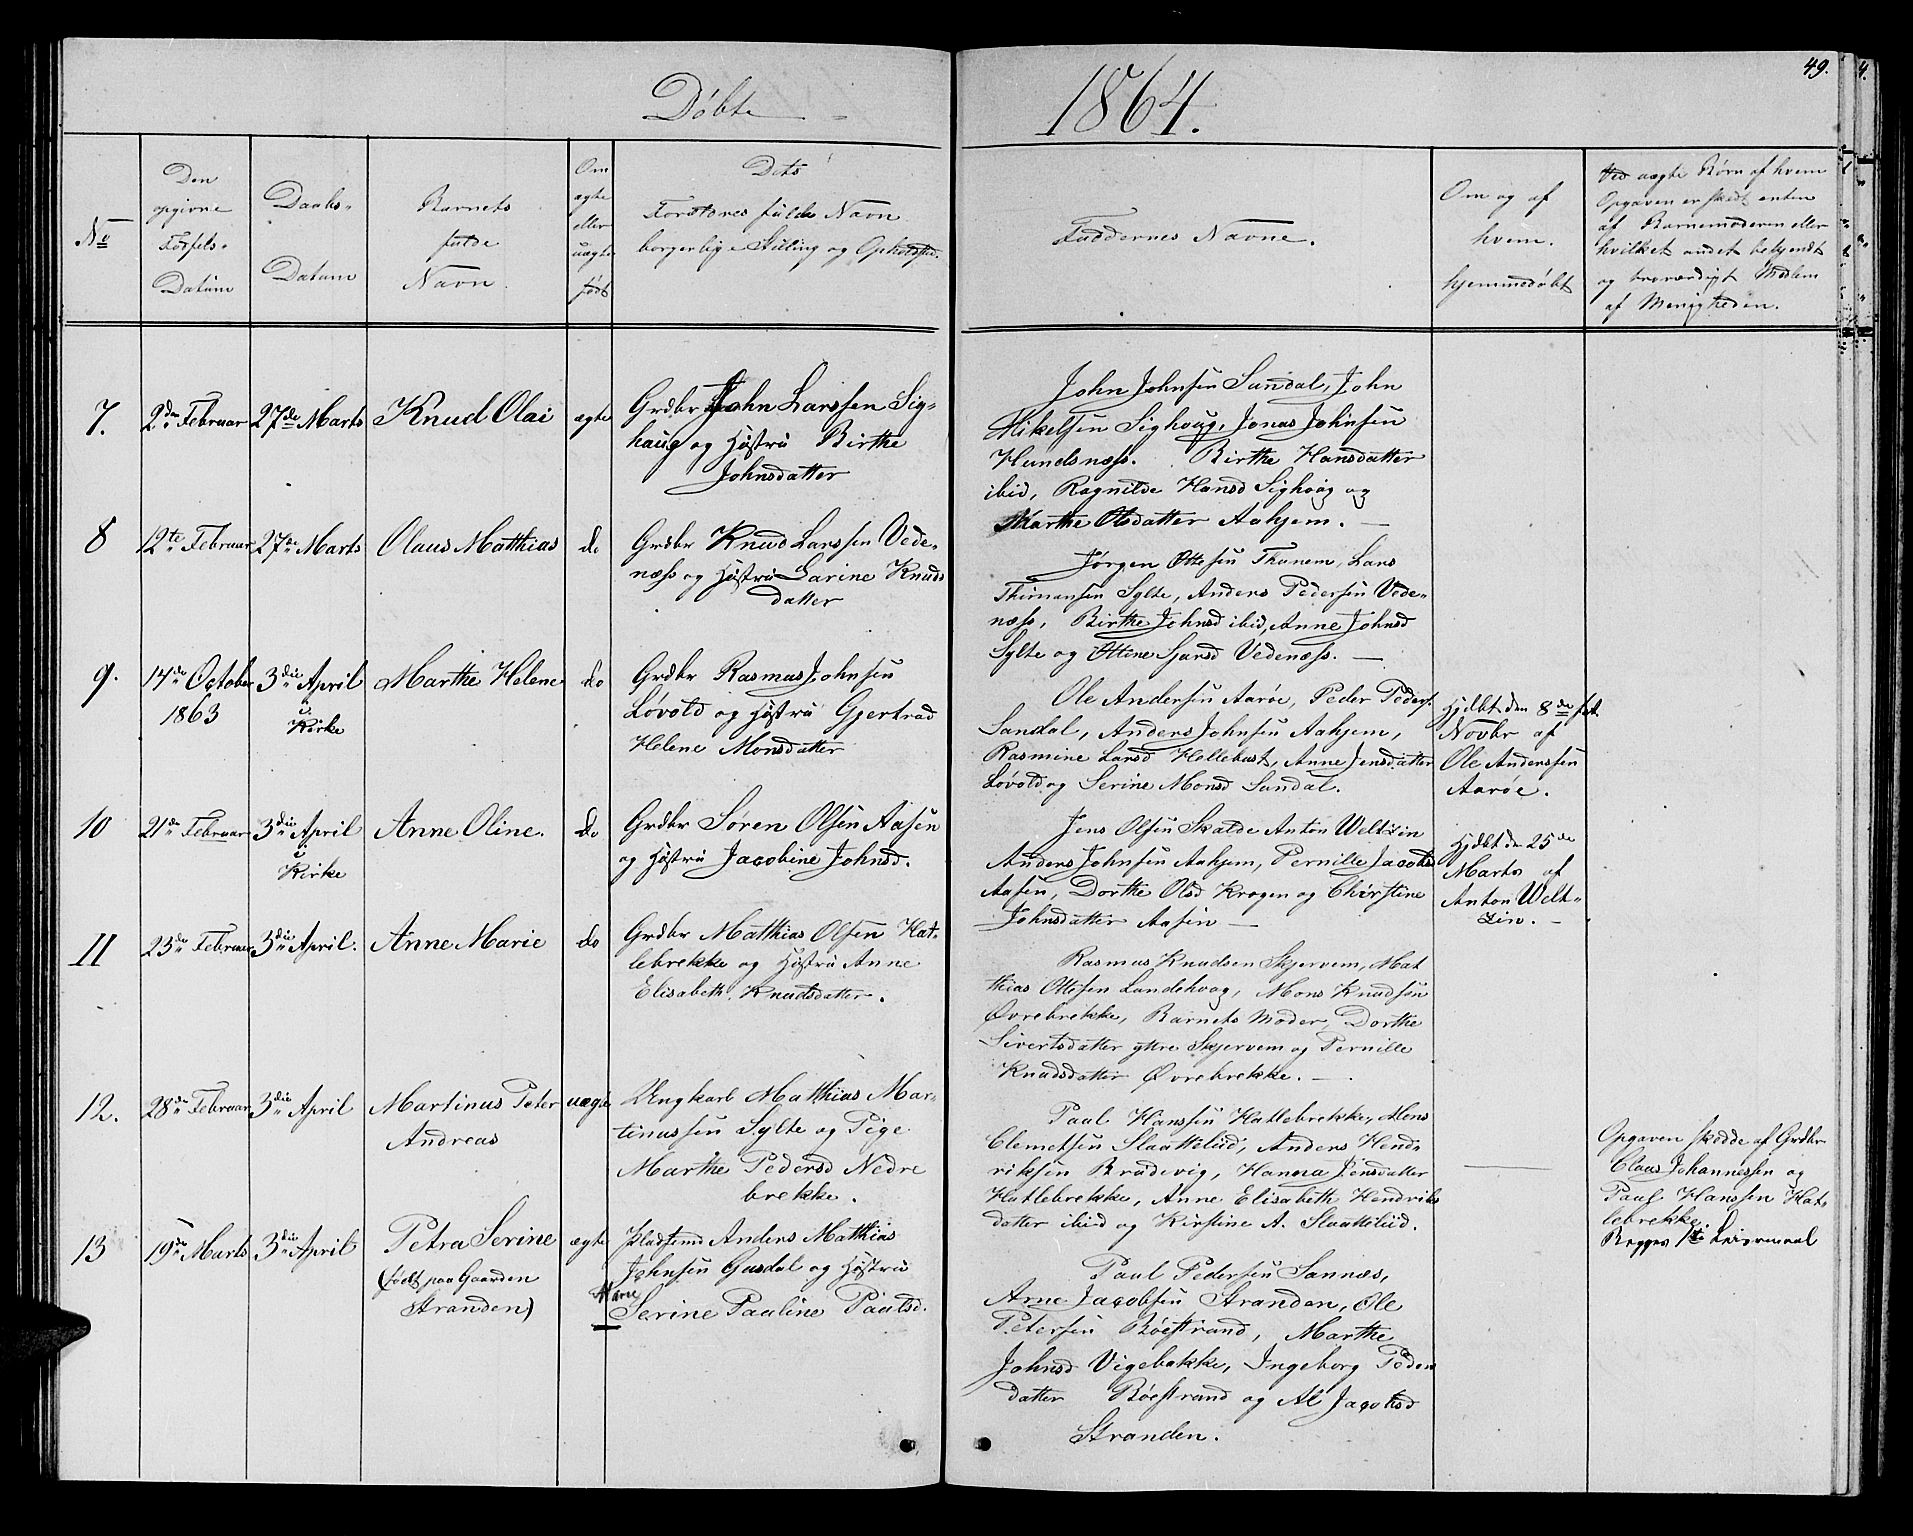 Døbte
1864.
49.
No
Den
opgivne
Fødsels-
Datum
Daabs-
Datum
Barnets
fulde
Navn
Om
ægte
eller
uægte
født
Dets
Forældres fulde Navn
borgerlige Stilling og Opholdssted.
Faddernes Navne.
Om og af
hvem.
hjemmedøbt
Ved uægte Børn af hvem
Opgaven er skedt enten
af Barnemoderen eller
hvilket andet bekjendt
og troværdigt Medlem
af Menigheden.
7.
2den Februar
27de Marts
Knud Olai
ægte
Grdbr John Larssen Sig-
haug og Hustru Birthe
Johnsdatter
John Johnsen Sandal, John
Mikelsen Sighoug, Jonas Johnsen
Hundsnæss. Birthe Hansdatter
ibid, Ragnilde Hansd Sighoug og
Marthe Olsdatter Aahjem. —
8
12te Februar
27de Marts
Olaus Matthias
do
Grdbr Knud Larssen Vede-
næss og Hustru Larine Knuds
datter
Jørgen Ottesen Thunem, Lars
Sylte, Anders Pedersen Vede-
næss, Birthe Johnsd ibid, Anne Johnsd
Sylte og Ottine Vedenæss. —
9.
14de October
1863
3die April
i
Kirke
Marthe Helene
do
Grdbr Rasmus Johnsen
Løvold og Hustru Gjertrud
Helene Monsdatter
Ole Andersen Aarøe, Peder Peders.
Sandal, Anders Johnsen Aahjem,
Rasmine Larsd Hellebust, Anne Jensdatter
Løvold og Serine Monsd Sandal.
Hjdbt den 8de
Novbr af
Ole Anderssen
Aarøe.
10
21de Februar
3die April
i
Kirke
Anne Oline.
do
Grdbr Søren Olsen Aasen
og Hustru Jacobine Johnsd.
Jens Olsen Skalde Anton Weltzin
Anders Johnsen Aahjem, Pernille Jacobsd
Aasen, Dorthe Olsd Krogen og Christine
Johnsdatter Aasen —
Hjdbt den 25de
Marts af
Anton Welt-
zin. —
11
23de Februar
3die April.
Anne Marie
do
Grdbr Matthias Olsen Hat-
lebrekke og Hustru Anne
Elisabeth Knudsdatter.
Rasmus Knudsen Skjervem, Mat
thias Ottesen Landehoug, Mons Knudsen
Øvrebrekke, Barnets Moder, Dorthe
Sivertsdatter yttre Skjervem og Pernille
Knudsdatter Øvrebrekke. —
12.
28de Februar
3die April
Martinus Peter
Andreas
uægte
Ungkarl Matthias Mar-
tinussen Sylte og Pige
Marthe Pedersd Nedre
brekke.
Paul Hanssen Hatlebrekke, Mons
Clemetsen Slaattelid, Anders Hend
riksen Bradevig, Hanna Jensdatter
Hatlebrekke, Anne Elisabeth Hendriks
datter ibid og Kirstine A. Slaattelid.
Opgaven skedde af Grdbr
Claus Johannessen og
Paul Hanssen Hat-
lebrekke
Begges 1ste Leiermaal
13
19de Marts
3die April
Petra Serine
(født paa Gaarden
Stranden)
ægte
Pladsmd Anders Matthias
Johnsen Gusdal og Hustru
Serine Pauline Paulsd.
Paul Pedersen Sannæs,
Arne Jacobsen Stranden, Ole
Petersen Røestrand, Marthe
Johnsd Vigebakke, Ingeborg Peders
datter Røestrand og Al Jacobsd
Stranden.